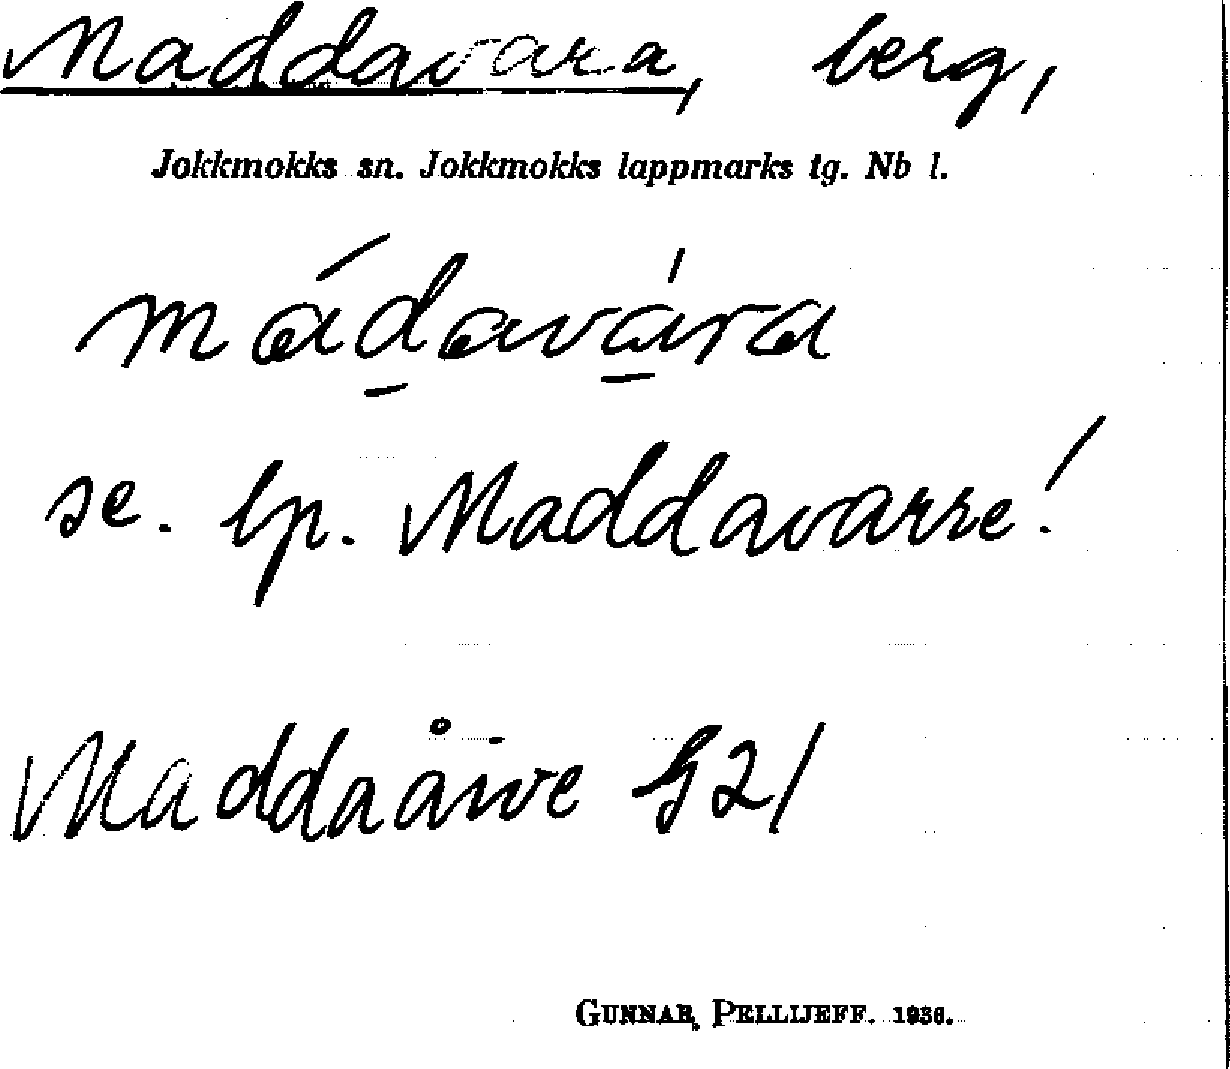 Maddavara, berg,
Jokkmokks sn. Jokkmokks lappmarks tg. Nb l.
mád̲avá̲ra
se. lp. Maddavarre!
Maddaåive G21
GUNNAR PELLIJEFF. 1936.